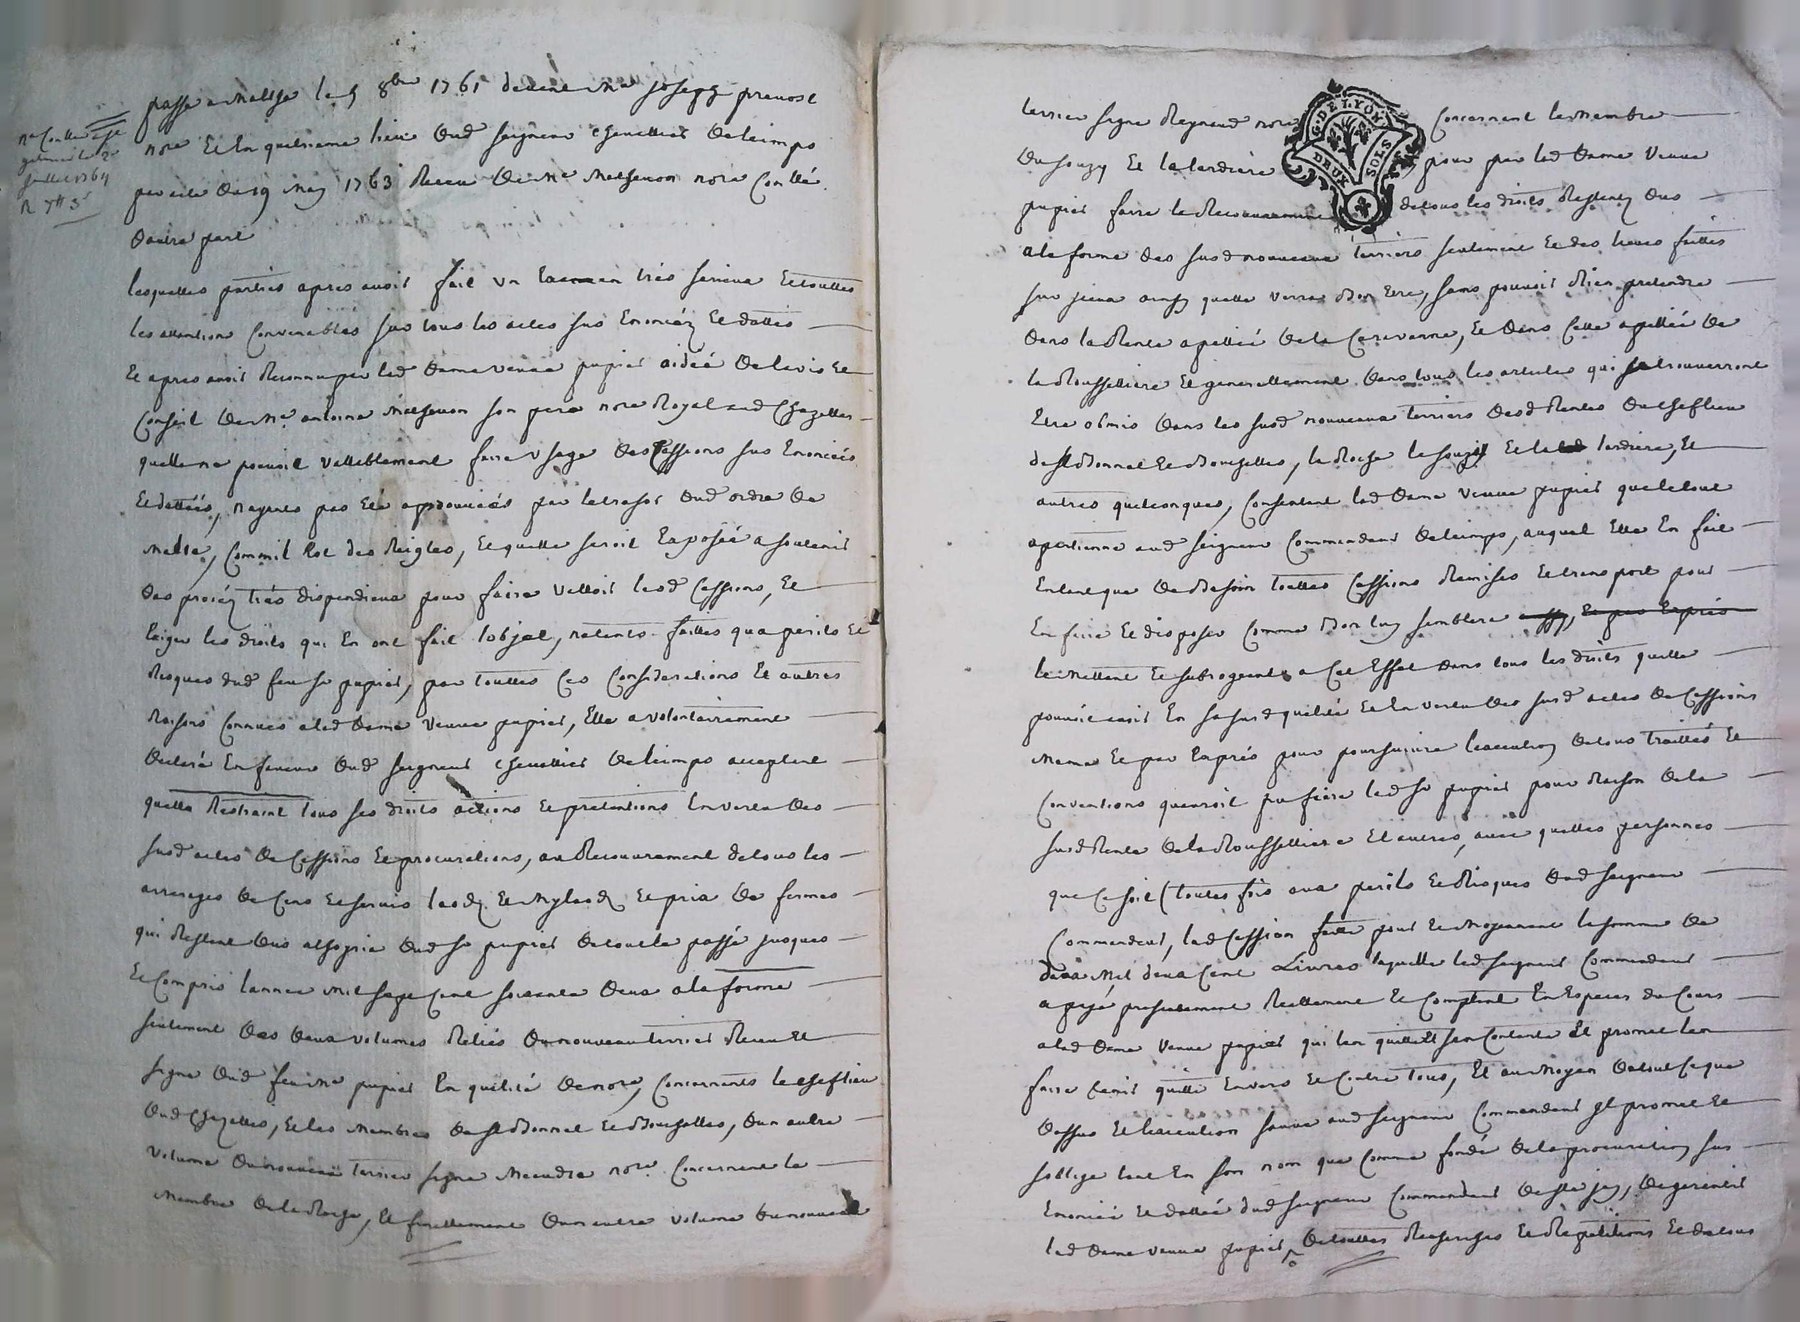 passé a Malthe le 5 8bre 1761 devant Me Joseph prevost
nore Et En quatrieme lieu dud seigneur chevallier Deleimpo
par acte du 19 May 1763 Receu De Me Matheuon nore Conllé
dautre part
lesquelles parties apres avoir fait un Examen trés serieux Et touttes
les attentions Convenables sur tous les actes sus Enoncéz Et dattés
Et apres avoir Reconnu par lad dame veuve pupier aidée De lavis Et
Conseil De Me antoine Matheuon son pere nore Royal aud Chazelles
quelle ne pouvoit vallablement faire usage des Cessions sus Enoncées
Et dattées, nayents pas Eté approuvées par le tresor dud ordre De
Malte, Comme il Est des Reigles, Et quelle seroit Exposée a soutenir
des procéz trés dispendieux pour faire valloir lesd Cessions, Et
Exiger les droits qui En ont fait lobjet, netents faittes qua perils Et
Risques dud feu sr pupier, par touttes Ces Considerations Et autres
Raisons Connues a lad Dame veuve pupier, Elle a volontairement
Declaré En faveur dud seigneur chevallier Deleimpo acceptant
quelle Restraint tous ses droits actions Et pretentions En vertu des
susd actes De Cessions Et procurations, au Recouvrement de tous les
arrerages De Cens Et servis laods Et Mylaods Et prix De fermes
qui Restent dus a lhoyrie dud sr pupier De tout le passé jusques
Et Compris lannee Mil sept Cent soixante deux a la forme
seulement des deux volumes Reliés Du nouveau terrier Receu Et
signé dud feu Me pupier En qualité De nore, Concernents le Chef lieu
dud Chazelles, Et les Membres De st Bonnet Et Bouzelles, Dun autre
volume du nouveau terrier signé Meaudre nore Concernant le
Membre De la Roche, Et finallement Dun autre volume du nouveau
terrier signé Reynaud nore Concernent le Membre
Du souzy Et la lardiere pour par lad Dame veuve
pupier faire le Recouvrement de tous les droits Restents dus
a la forme des susd nouveaux terriers seulement Et des lieves faittes
sur jceux ainsy quelle verra Bon Etre, sans pouvoir Rien pretendre
dans la Rente apellée De la Caravanne, Et dans Celle apellée De
la Roussilliere Et generallement dans tous les articles qui se trouverront
Etre obmis dans les susd nouveaux terriers desd Rentes du Chef lieu
de st Bonnet Et Bouzelles, la Roche le souzy Et la lardiere, Et
autres quelconques, Consentant lad Dame veuve pupier que le tout
apartienne aud seigneur Commandeur Deleimpo, auquel Elle En fait
En tant que De Besoin touttes Cessions Remises Et transport pour
En faire Et disposer Comme Bon luy semblera
le Mettant Et subrogeant a Cet Effet dans tous les droits quelle
pouvoit avoir En sa susd qualité Et En vertu des susd actes De Cessions
Meme Et par Exprés pour poursuivre lexecution De tous traittés Et
Conventions quauroit pu faire led sr pupier pour Raison De la
susd Rente De la Roussilliere Et autres, avec quelles personnes
que Ce soit (toutes fois aux perils Et Risques dud seigneur
Commandeur, lad Cession faitte pour Et Moyennant la somme De
deux Mil deux Cent Livres laquelle led seigneur Commandeur
a payé presentement Reellement Et Comptent En Especes du Cours
a lad Dame veuve pupier qui len quitte Et sen Contente Et promet len
faire tenir quitte Envers Et Contre tous, Et au Moyen De tout Ce que
dessus Et lexecution sauve aud seigneur Commandeur jl promet Et
soblige tant En son nom que Comme fondé De la procuration sus
Enoncée Et dattée dud seigneur Commandeur De ste jay, De garentir
lad Dame veuve pupier, De touttes Recherches Et Repetitions Et de tous
G. DE LYON
DEUX SOLS